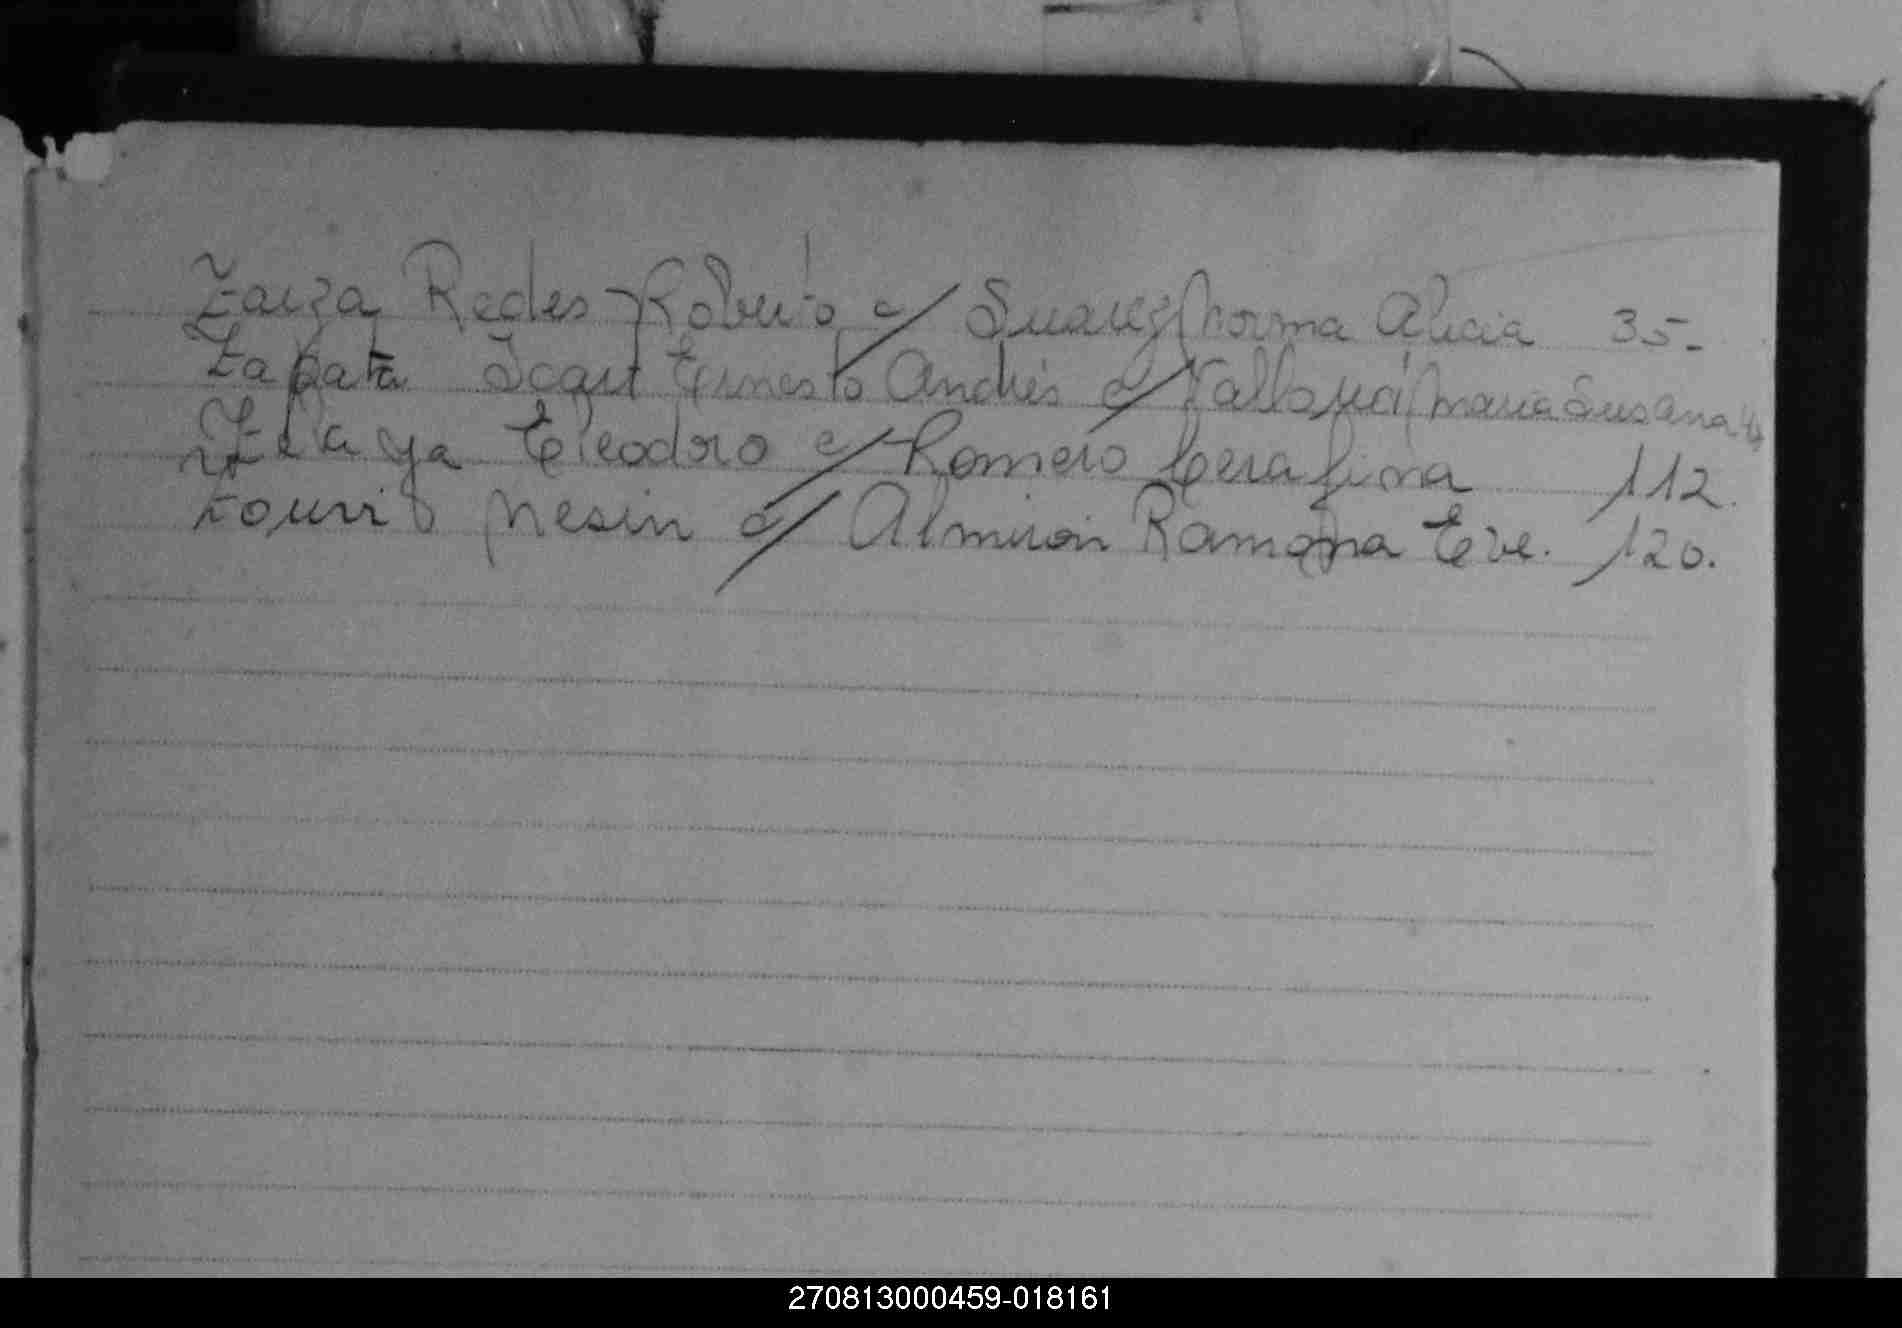 Zarza Redes Roberto c/ Suarez Norma Alicia 35-
Zapata Ernesto Andrés c/ Maria Susana
Zelaya Eleodoro c/ Romero Cerafina 112.
Nesin c/ Almirón Ramona Eve. 120.
270813000459-018161